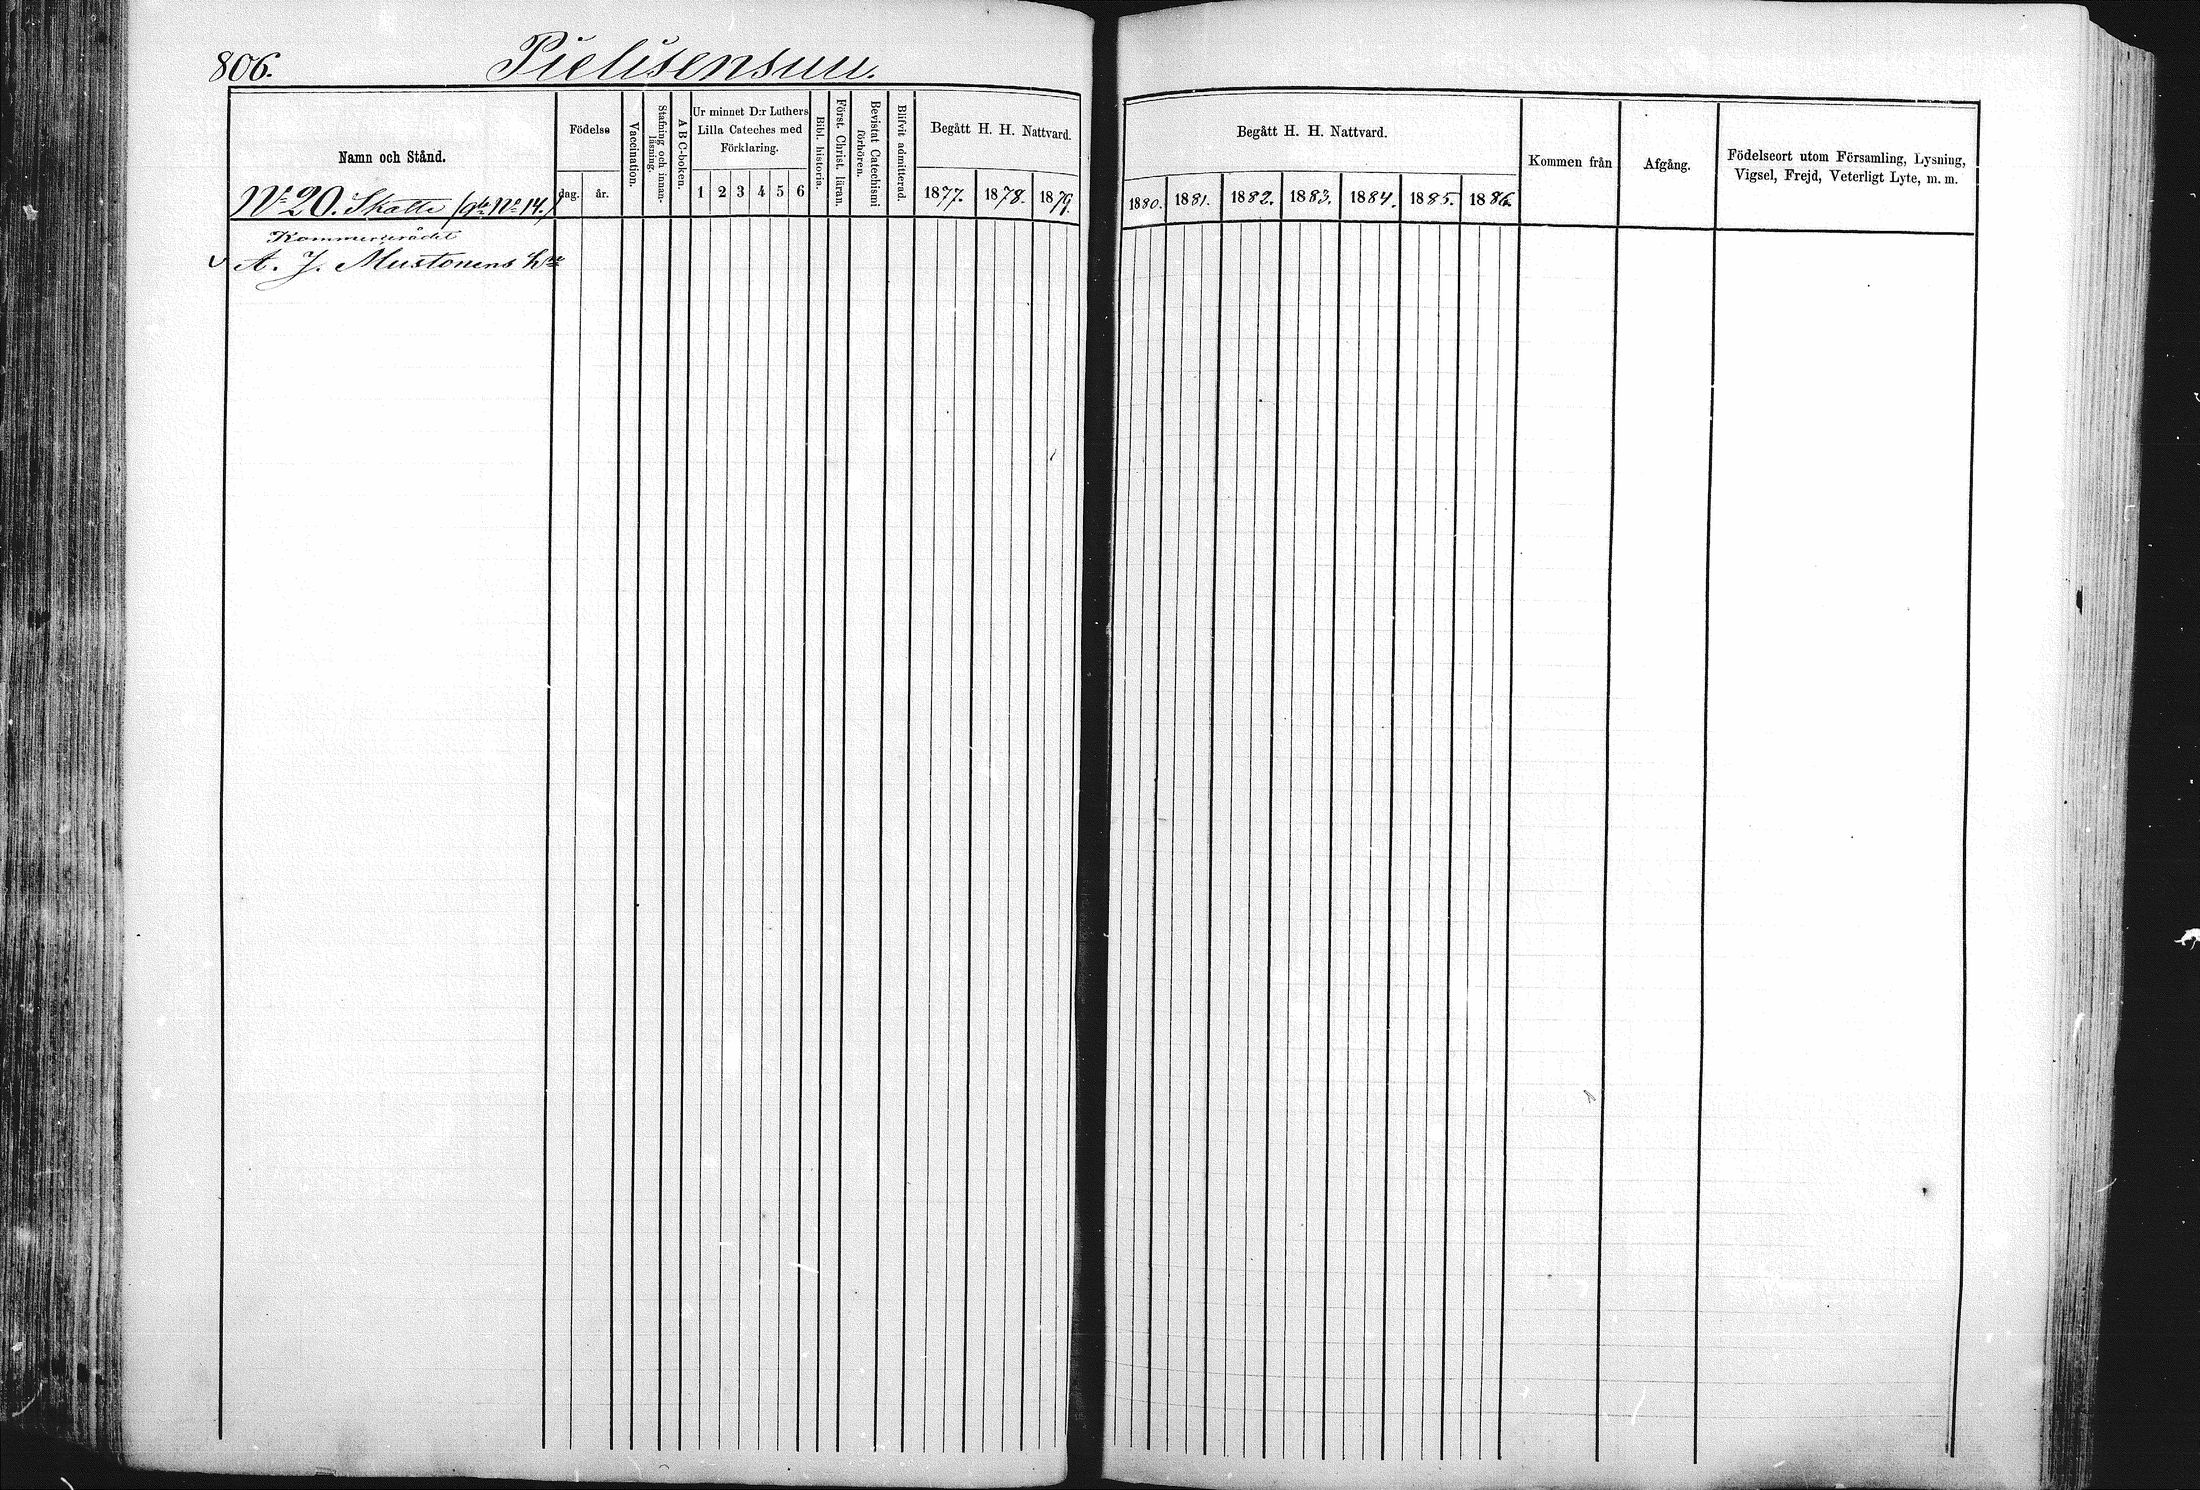 806.
Pielisensuu.
Namn och Stånd.
Födelse
dag.
år.
Vaccination.
Stafning och innan-
läsning.
A B C-boken.
Ur minnet D:r Luthers
Lilla Cateches med
Förklaring.
1 2 3 4 5 6
Bibl. historia.
Först. Christ. läran.
Bevistat Catechismi
förhören.
Blifvit admitterad.
Begått H. H. Nattvard.
1877. 1878. 1879.
Begått H. H. Nattvard.
1880. 1881. 1882. 1883. 1884. 1885. 1886.
Kommen från
Afgång.
Födelseort utom Församling, Lysning,
Vigsel, Frejd, Veterligt Lyte, m. m.
No 20. Skatte (gle No 14.)
Kommerserådet
A. J. Mustonens